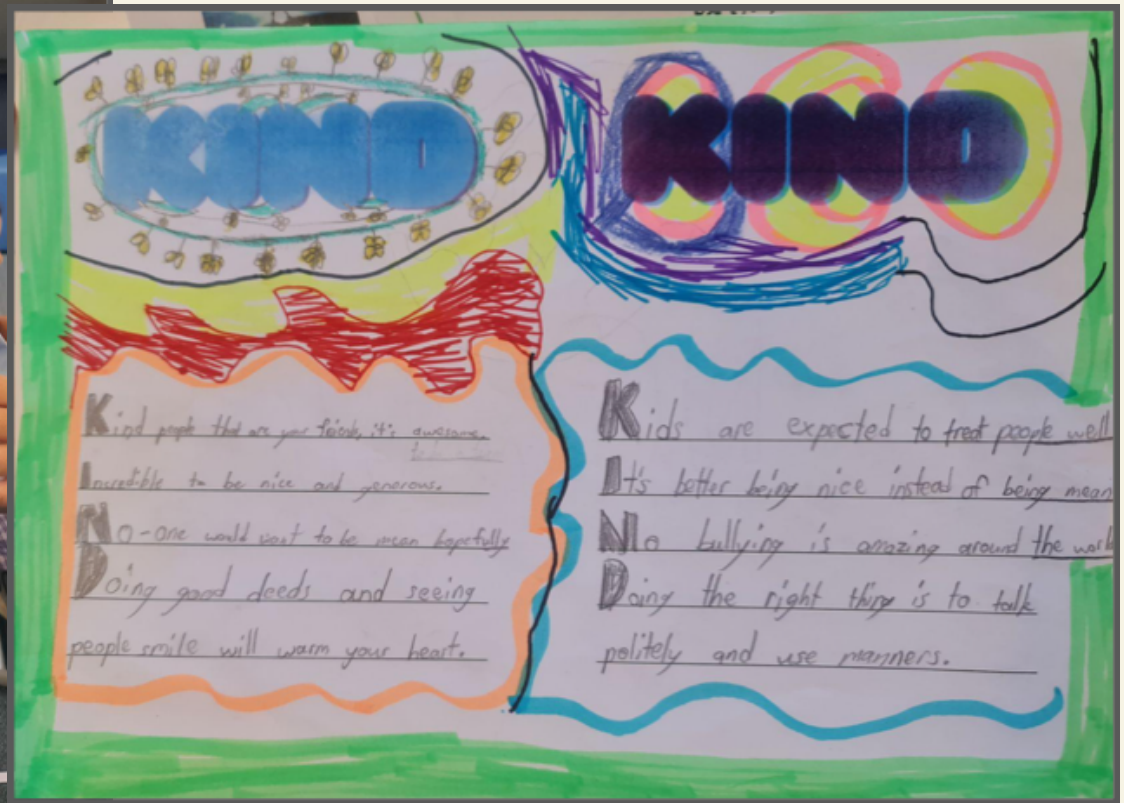 KIND
Kind people that are your friends, it's awesome.
Incredible to be nice and generous.
No-one would want to be mean hopefully
Doing good deeds and seeing
people smile will warm your heart.
KIND
Kids are expected to treat people well
It's better being nice instead of being mean
No bullying is amazing around the worl
Doing the right thing is to talk
politely and use manners.